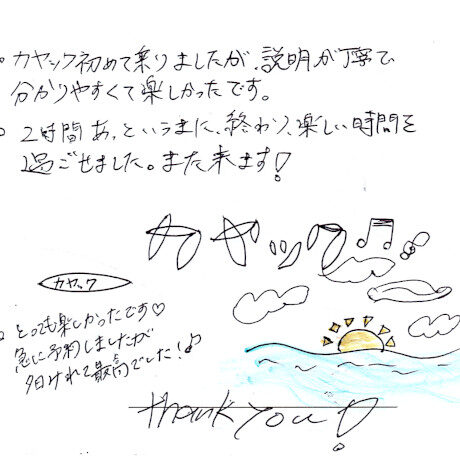 カヤック初めて乗りましたが、説明が丁寧で
分かりやすくて楽しかったです。
2時間あっというまに、終わり、楽しい時間を
過ごせました。また来ます!
カヤック♫♪
カヤック
とっても楽しかったです♡
急に予約しましたが
行けれて最高でした!♪
thank you!